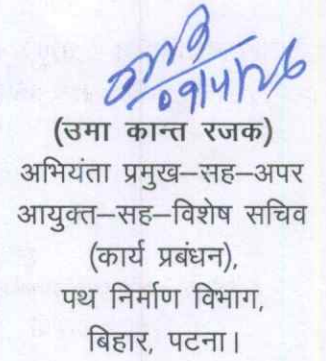 09/4/26
(उमा कान्त रजक)
अभियंता प्रमुख–सह–अपर
आयुक्त–सह–विशेष सचिव
(कार्य प्रबंधन),
पथ निर्माण विभाग,
बिहार, पटना।